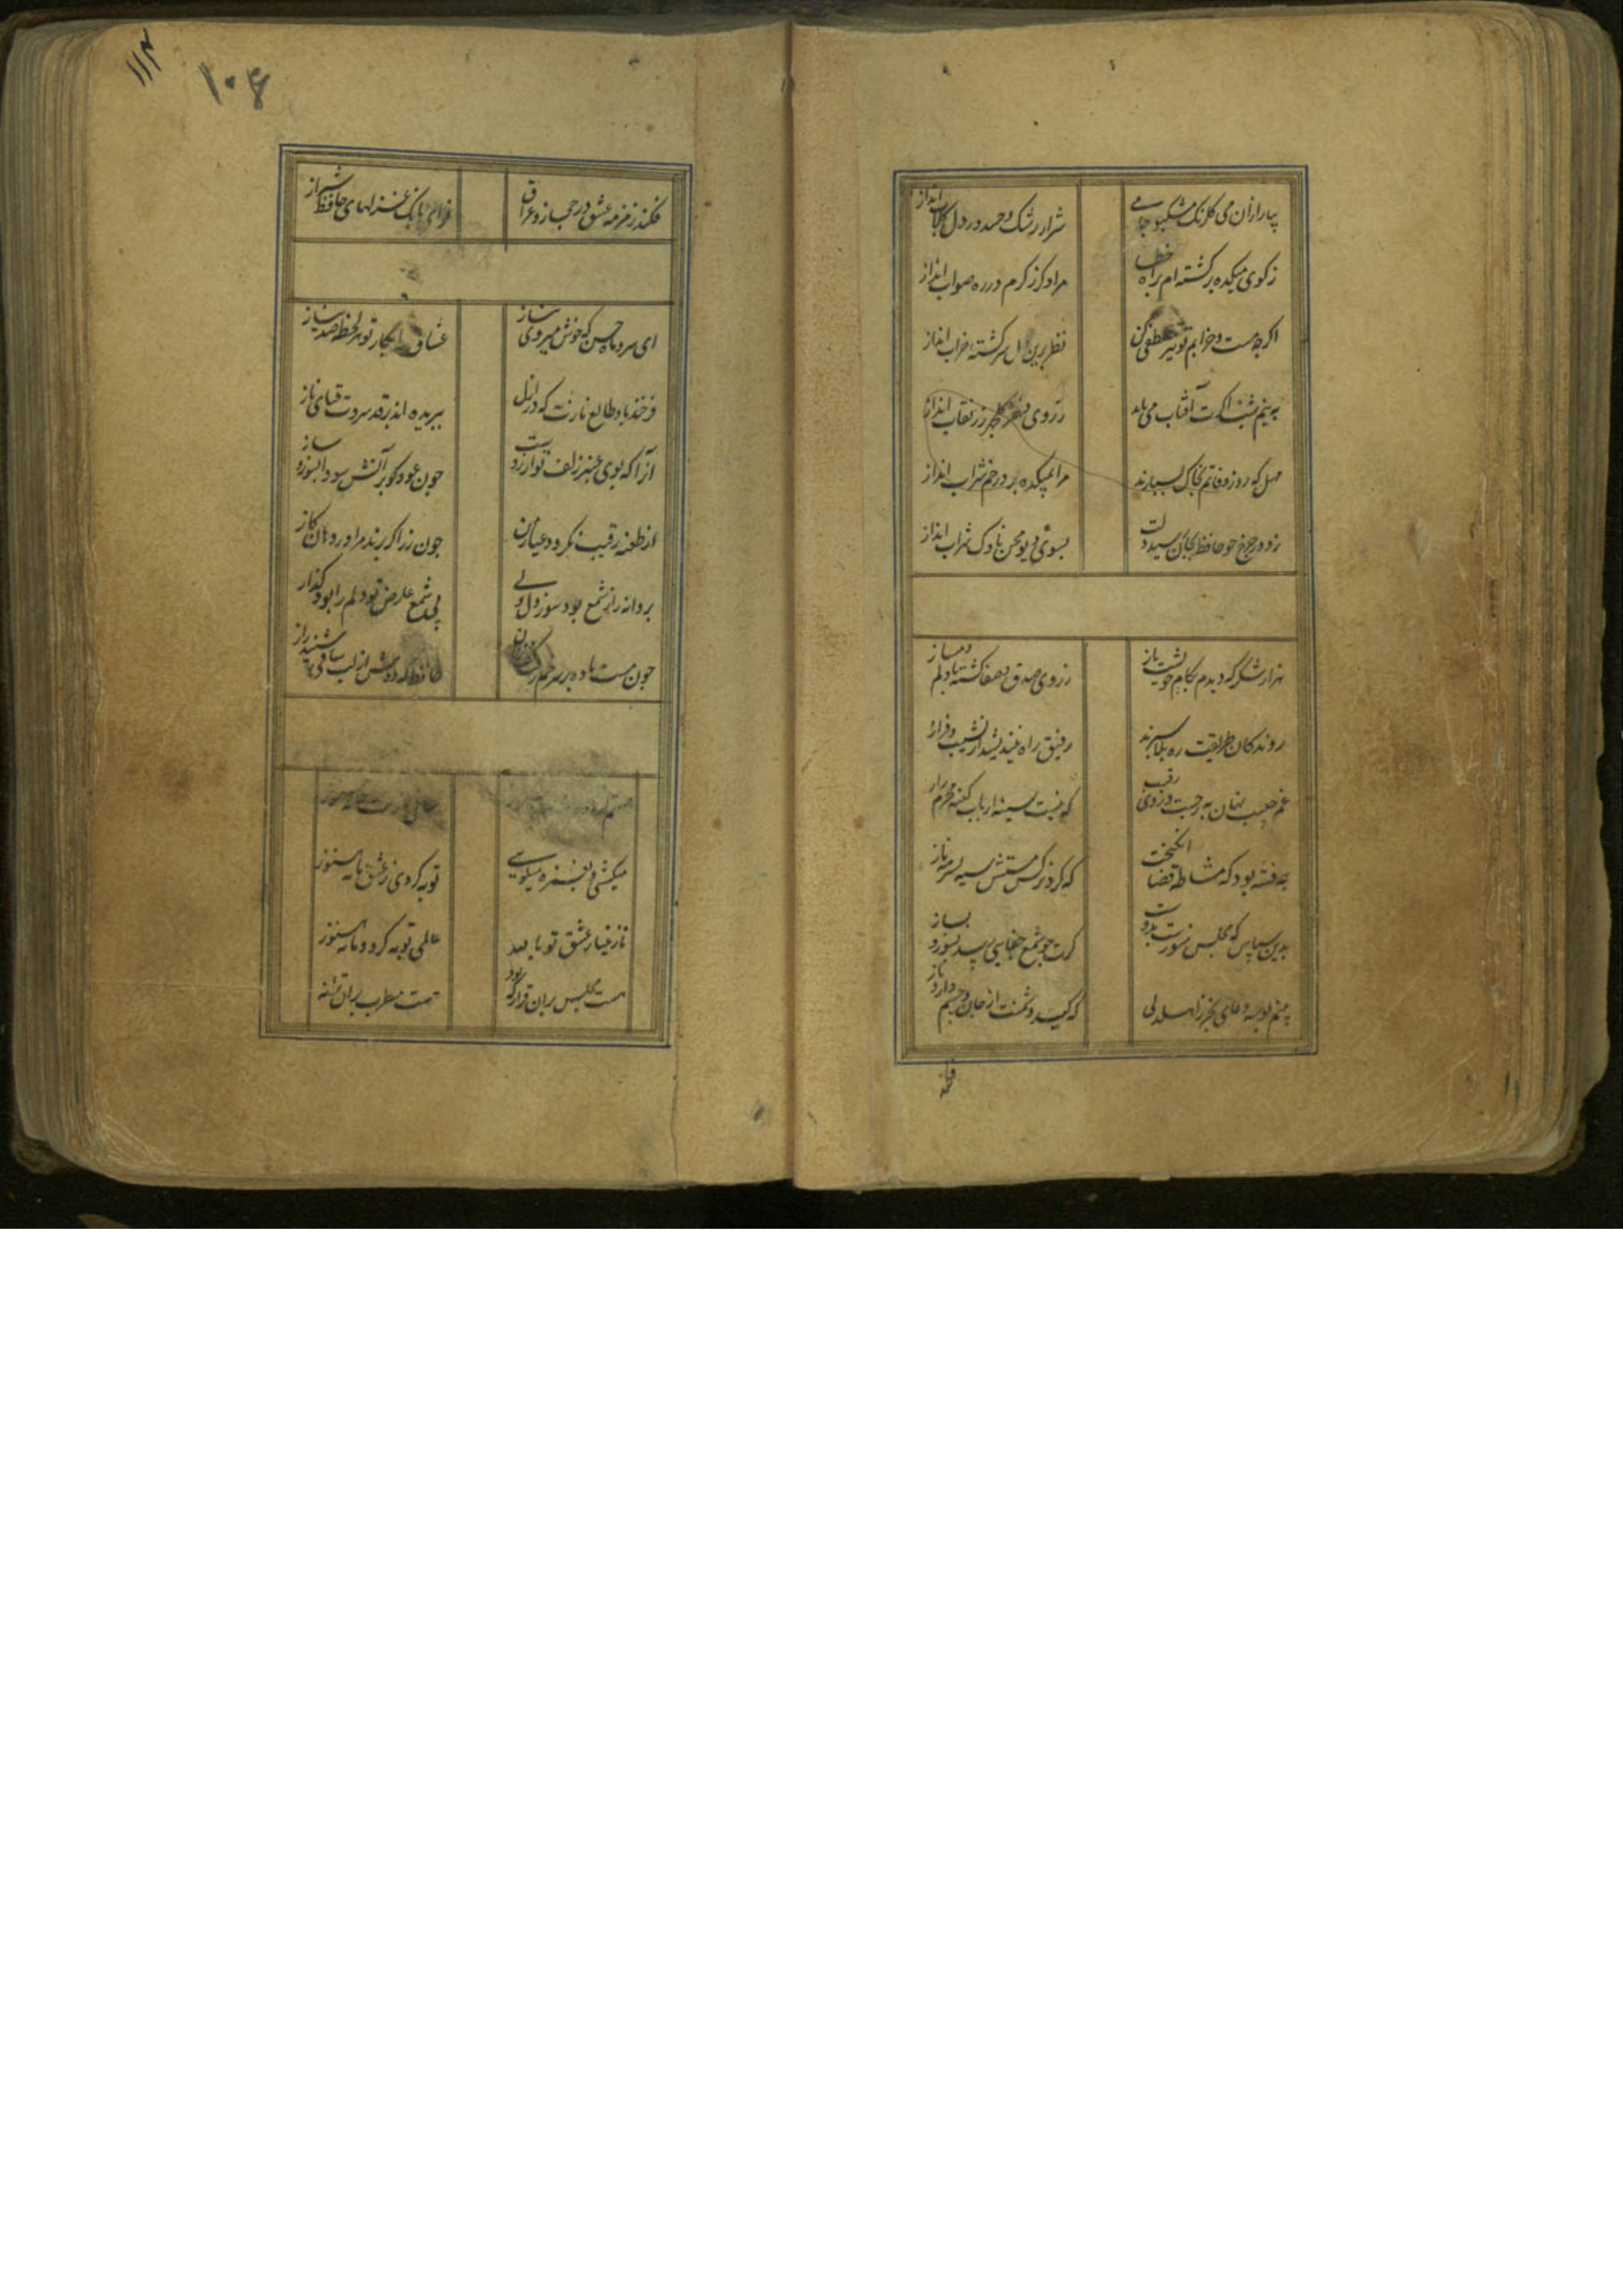 بیار ازان می کلرنک مشکبو جامی
شرار رشک و حسد در دل کلاب انداز
ز کوی میکده برکشته ام براه خطا
مرا دکر ز کرم در ره صواب انداز
اکرچه مست و خرابم تو نیز لطفی کن
نظر برین دل سرکشته خراب انداز
به نیم شب اکرت آفتاب می باید
ز روی دختر کلچهر رز نقاب انداز
مهل که روز وفاتم بخاک بسپارند
مرا بمیکده بر در خم شراب انداز
ز دور چرخ چو حافظ بجان رسید دلت
بسوی دیو محن ناوک شهاب انداز
هزار شکر که دیدم بکام خویشت باز
ز روی صدق و صفا کشته با دلم دمساز
روندکان طریقت ره بلا سپرند
رفیق راه نیندیشد از نشیب و فراز
غم حبیب نهان به ز جست و جوی رقیب
که نیست سینه ارباب کینه محرم راز
چه فتنه بود که مشاطه قضا انکیخت
که کرد نرکس مستش سیه بسرمه ناز
بدین سپاس که مجلس منورست بدوست
کرت چو شمع جفایی رسد بسوز و بساز
به نیم بوسه دعای بخر ز اهل دلی
که کید دشمنت از جان و جسم دارد باز
فکند
۱۱۴
۱۰۶
فکند زمزمه عشق در حجاز و عراق
نوای بانک غزلهای حافظ شیراز
ای سرو ماه حسن که خوش میروی بناز
عشاق را بناز تو هر لحظه صد نیاز
فرخنده باد طالع نازت که در ازل
ببریده اند بر قد سروت قبای ناز
آنرا که بوی عنبر زلف تو آرزوست
چون عود کو بر آتش سودا بسوز و ساز
از طعنه رقیب نکردد عیار من
چون زر اکر برند مرا در دهان کاز
پروانه را ز شمع بود سوز دل ولی
بی شمع عارض تو دلم را بود کداز
چون مست باده بر سر خم رفت
حافظ که دوش از لب ساقی شنید راز
میکشی و بغمزه میکویی
توبه کردی ز عشق ما نه هنوز
نازنینا ز عشق تو تا بعد
عالمی توبه کرد و ما نه هنوز
هست مجلس بران قرار که بود
هست مطرب بران ترانه